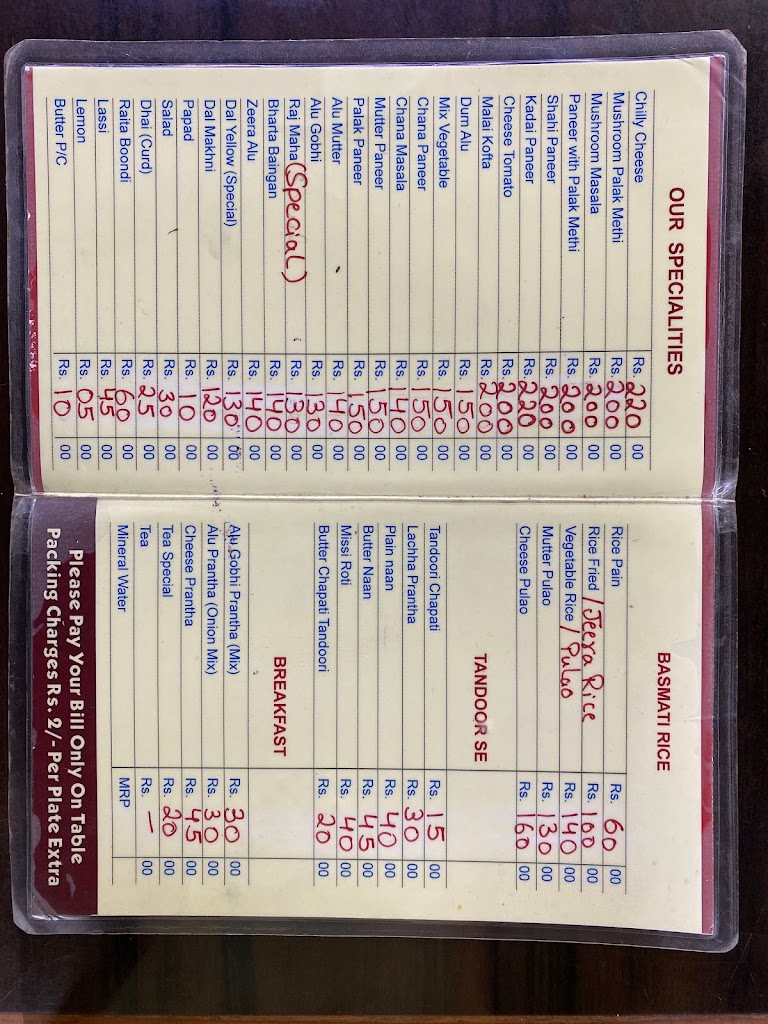 OUR SPECIALITIES
Chilly Cheese Rs. 220 00
Mushroom Palak Methi Rs. 200 00
Mushroom Masala Rs. 200 00
Paneer with Palak Methi Rs. 200 00
Shahi Paneer Rs. 200 00
Kadai Paneer Rs. 220 00
Cheese Tomato Rs. 200 00
Malai Kofta Rs. 200 00
Dum Alu Rs. 150 00
Mix Vegetable Rs. 150 00
Chana Paneer Rs. 150 00
Chana Masala Rs. 140 00
Mutter Paneer Rs. 150 00
Palak Paneer Rs. 150 00
Alu Mutter Rs. 140 00
Alu Gobhi Rs. 130 00
Raj Maha (Special) Rs. 130 00
Bharta Baingan Rs. 140 00
Zeera Alu Rs. 140 00
Dal Yellow (Special) Rs. 130 00
Dal Makhni Rs. 120 00
Papad Rs. 10 00
Salad Rs. 30 00
Dhai (Curd) Rs. 25 00
Raita Boondi Rs. 60 00
Lassi Rs. 45 00
Lemon Rs. 05 00
Butter P/C Rs. 10 00
BASMATI RICE
Rice Pain Rs. 60 00
Rice Fried / Jeera Rice Rs. 100 00
Vegetable Rice / Pulao Rs. 140 00
Mutter Pulao Rs. 130 00
Cheese Pulao Rs. 160 00
TANDOOR SE
Tandoori Chapati Rs. 15 00
Lachha Prantha Rs. 30 00
Plain naan Rs. 40 00
Butter Naan Rs. 45 00
Missi Roti Rs. 40 00
Butter Chapati Tandoori Rs. 20 00
BREAKFAST
Alu Gobhi Prantha (Mix) Rs. 30 00
Alu Prantha (Onion Mix) Rs. 30 00
Cheese Prantha Rs. 45 00
Tea Special Rs. 20 00
Tea Rs. — 00
Mineral Water MRP
Please Pay Your Bill Only On Table
Packing Charges Rs. 2/- Per Plate Extra